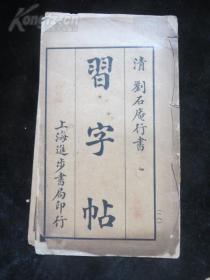 清 劉石庵行書
習字帖
上海進步書局印行